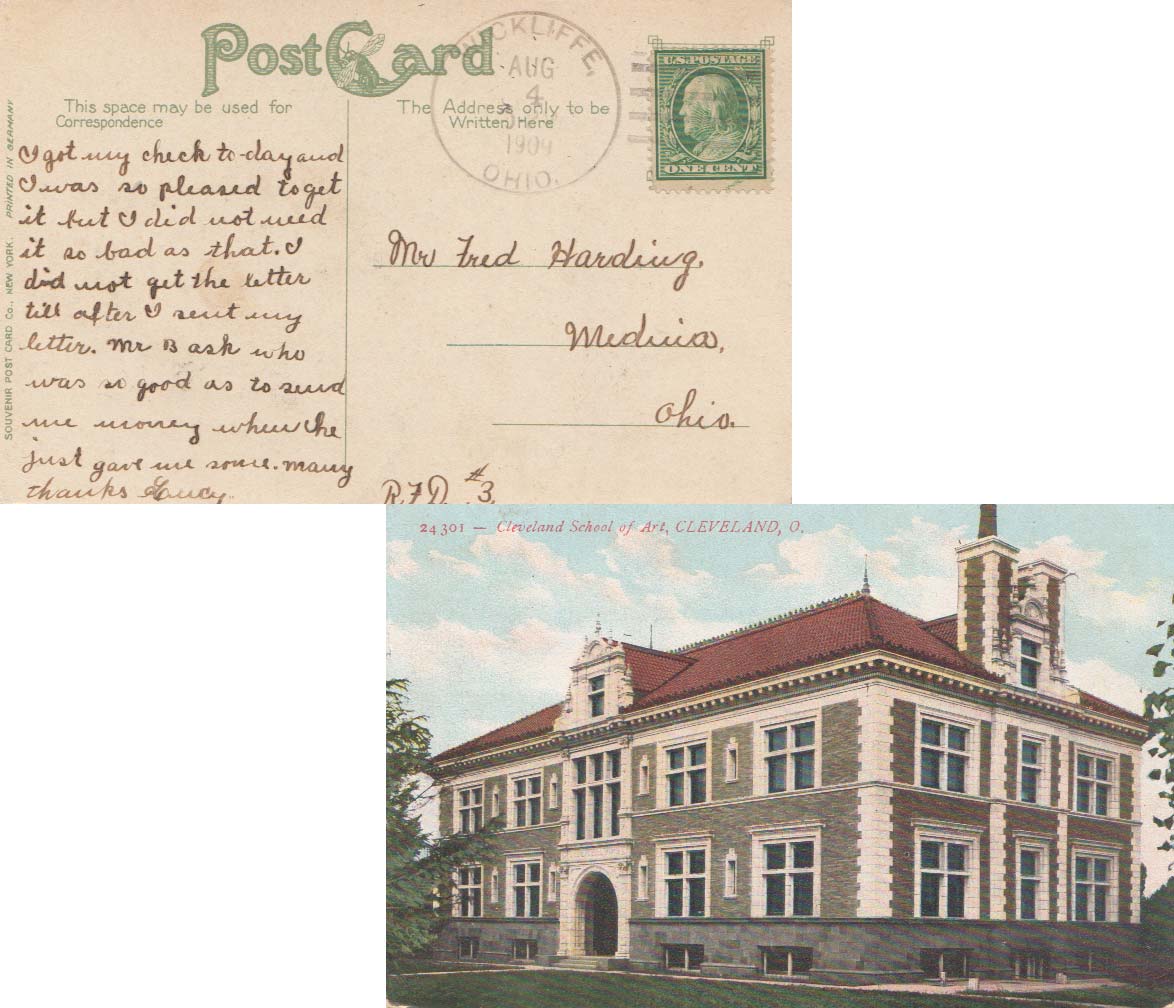 Post Card
WICKLIFFE,
AUG
4
1909
OHIO.
U.S. POSTAGE
ONE CENT
This space may be used for
Correspondence
The Address only to be
Written Here
SOUVENIR POST CARD Co., NEW YORK. PRINTED IN GERMANY
I got my check to-day and
I was so pleased to get
it but I did not need
it so bad as that. I
did not get the letter
till after I sent my
letter. Mr B ask who
was so good as to send
me money when he
just gave me some. Many
thanks
Mr Fred Harding,
Medina,
Ohio.
R.F.D. #3
24301 — Cleveland School of Art, CLEVELAND, O.